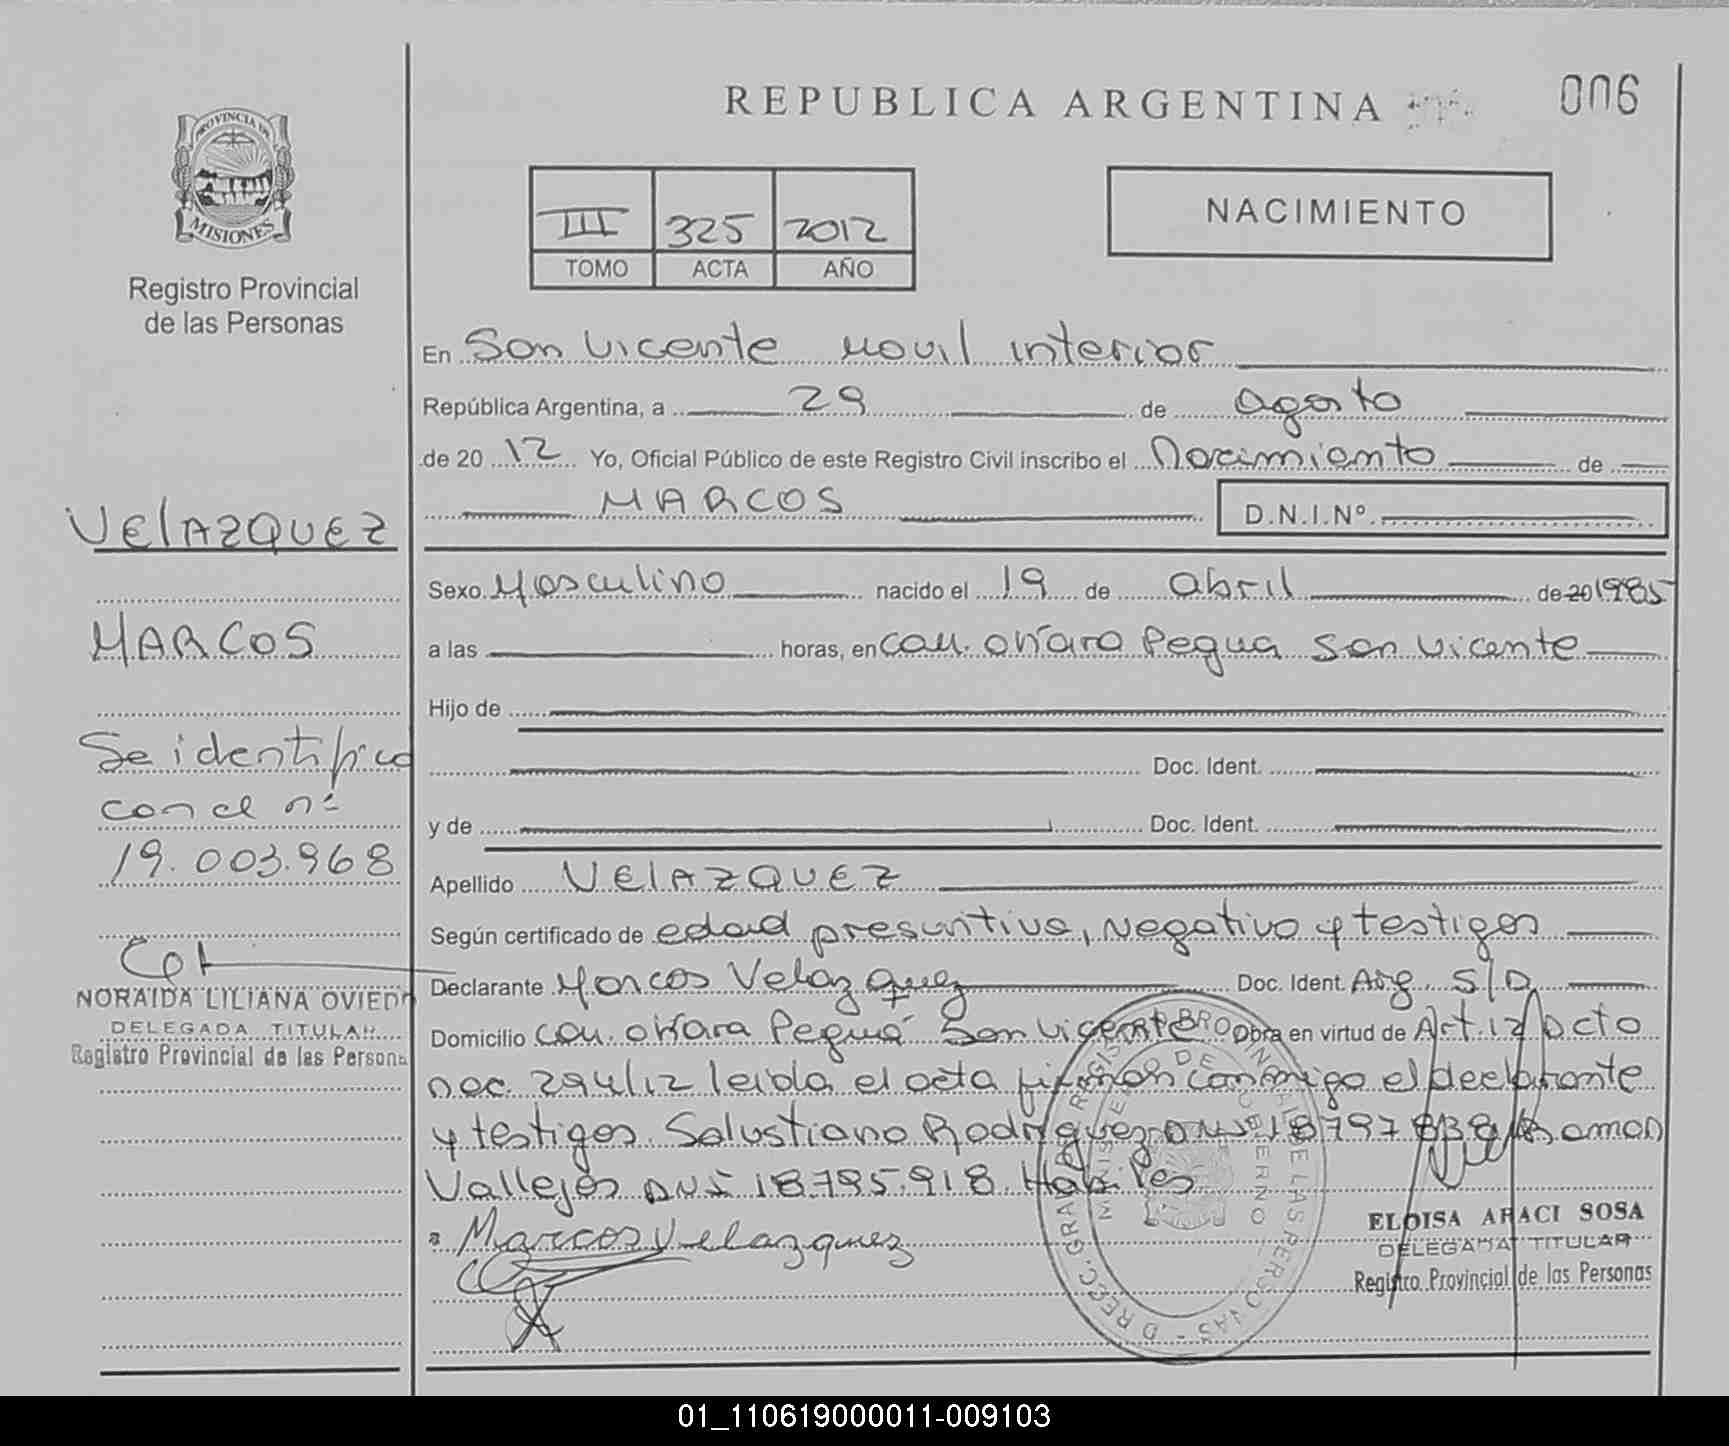 REPUBLICA ARGENTINA
006
PROVINCIA DE
MISIONES
Registro Provincial
de las Personas
III 325 2012
TOMO ACTA AÑO
NACIMIENTO
En San Vicente Movil interior
República Argentina, a 29 de agosto
de 20 12 Yo, Oficial Público de este Registro Civil inscribo el Nacimiento de
MARCOS D.N.I.Nº
VELAZQUEZ
MARCOS
Se identifico
con el nº
19.003.968
NORAIDA LILIANA OVIEDO
DELEGADA TITULAR
Registro Provincial de las Persona
Sexo Masculino nacido el 19 de abril de 20 1985
a las horas, en Pegua San Vicente
Hijo de
Doc. Ident.
y de Doc. Ident.
Apellido VELAZQUEZ
Según certificado de edad presuntiva, negativo y testigos
Declarante Marcos Velazquez Doc. Ident. Arg. S/D
Domicilio Peguá San Vicente Obra en virtud de Art. 12 Dcto
nec. 294/12 leida el acta firman conmigo el declarante
y testigos. Salustiano Rodriguez DNI 18797838 Ramon
Vallejos DNI 18.795.918.
a Marcos Velazquez
MINISTERIO DE GOBIERNO
ELOISA ARACI SOSA
DELEGADA TITULAR
Registro Provincial de las Personas
01_110619000011-009103